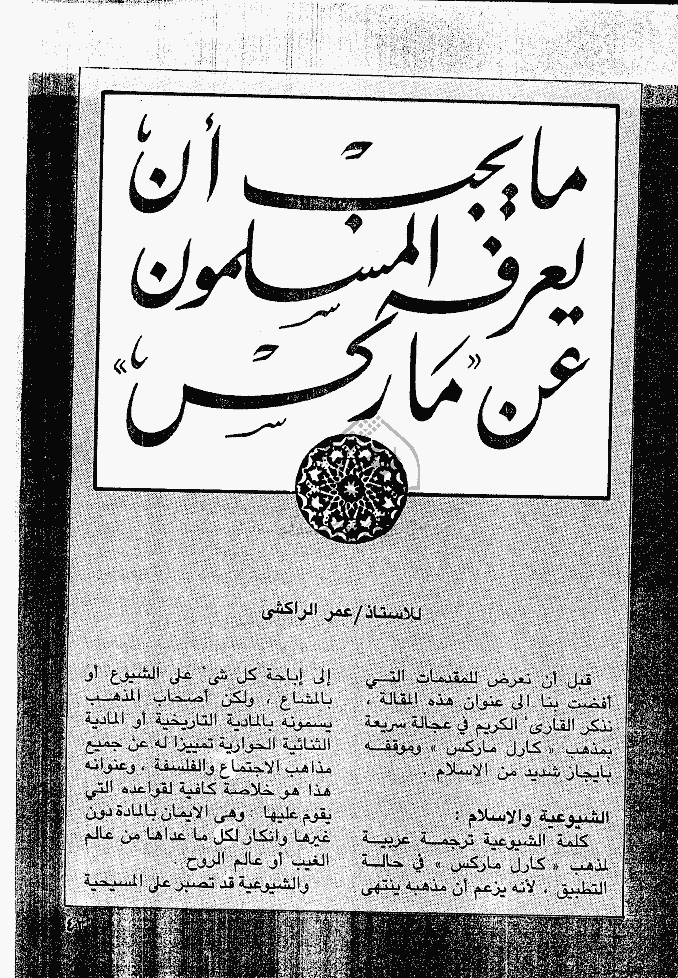 ما يجب أن
يعرفه المسلمون
عن «ماركس»
للاستاذ/عمر الراكشى
قبل أن نعرض للمقدمات التـــي
أفضت بنا الى عنوان هذه المقالة ،
نذكر القارىء الكريم في عجالة سريعة
بمذهب « كارل ماركس » وموقفـــه
بايجاز شديد من الاسلام .
الشيوعية والاسلام :
كلمة الشيوعية ترجمـــة عربيـــة
لمذهب « كارل ماركس » في حالـــة
التطبيق ، لأنه يزعم أن مذهبه ينتهى
إلى إباحة كل شىء على الشيوع أو
بالمشاع ، ولكن أصحاب المذهـــب
يسمونه بالمادية التاريخية أو المادية
الثنائية الحوارية تمييزا له عن جميع
مذاهب الاجتماع والفلسفة ، وعنوانه
هذا هو خلاصة كافية لقواعده التي
يقوم عليها . وهى الايمان بالمادة دون
غيرها وانكار لكل ما عداها من عالم
الغيب أو عالم الروح .
والشيوعية قد تصبر على المسيحية